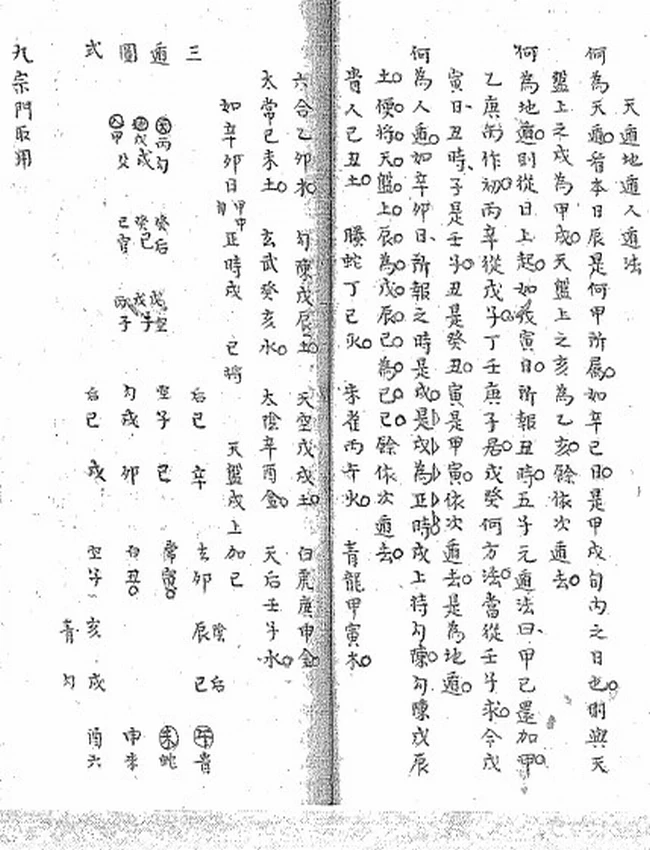 天遁地遁人遁法
何為天遁看本日辰是何甲所屬如辛巳日是甲戌旬內之日也則與天
盤上之戌為甲戌天盤上之亥為乙亥餘依次遁去
何為地遁則從日上起如戊寅日所報丑時五子元遁法曰甲己還加甲
乙庚丙作初丙辛從戊子丁壬庚子居戊癸何方法當從壬子求今戊
寅日丑時子是壬子丑是癸丑寅是甲寅依次遁去是為地遁
何為人遁如辛卯日所報之時是戌是戌為正時戌上待勾陳勾陳戊辰
土便將天盤上辰為戊辰巳為己巳餘依次遁去
貴人己丑土 螣蛇丁巳火 朱雀丙午火 青龍甲寅木
六合乙卯木 勾陳戊辰土 天空戊戌土 白虎庚申金
太常己未土 玄武癸亥水 太陰辛酉金 天后壬子水
如辛卯日 甲申旬 正時戌 巳將 天盤戌上加巳
三遁圖式
天丙勾 癸后 戊空
地戊戌 癸巳 戊子
人甲 己 丙子
后巳 辛 玄卯 辰陰 巳后 午貴
空子 巳 常寅 未蛇
勾戌 卯 白丑 申朱
后巳 戌 空子 亥 戌 酉六
青 勾
九宗門取用